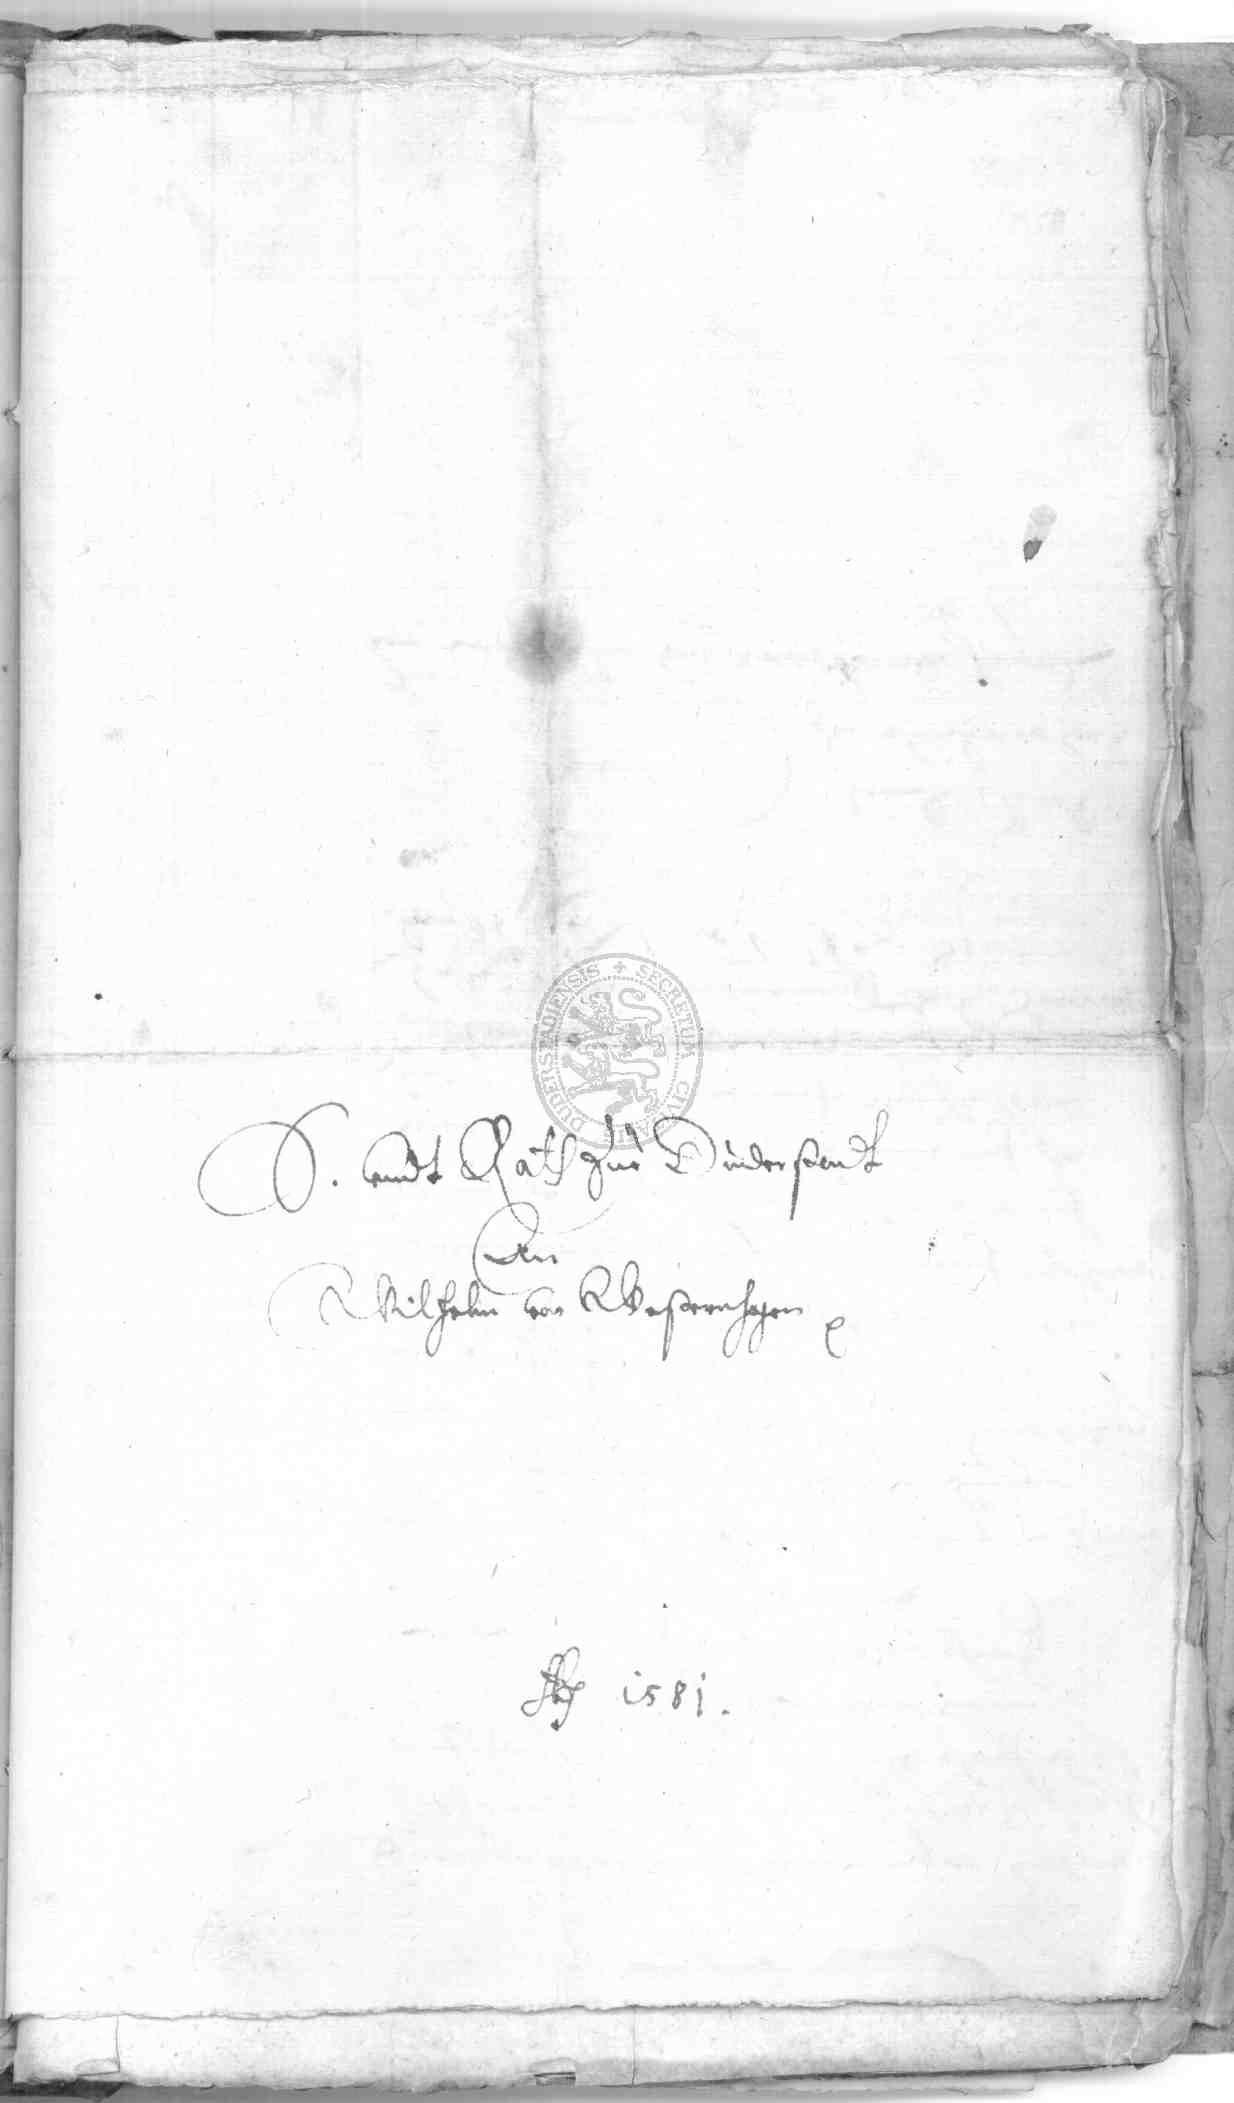 SECRETUM CIVITATIS DUDERSTADIENSIS
S. undt Rath zue Duderstadt
An
Wilhelm von Westernhagen
1581.